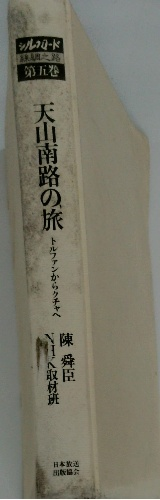 シルクロード
絲綢之路
第五巻
天山南路の旅
トルファンからクチャへ
陳舜臣
NHK取材班
日本放送
出版協会